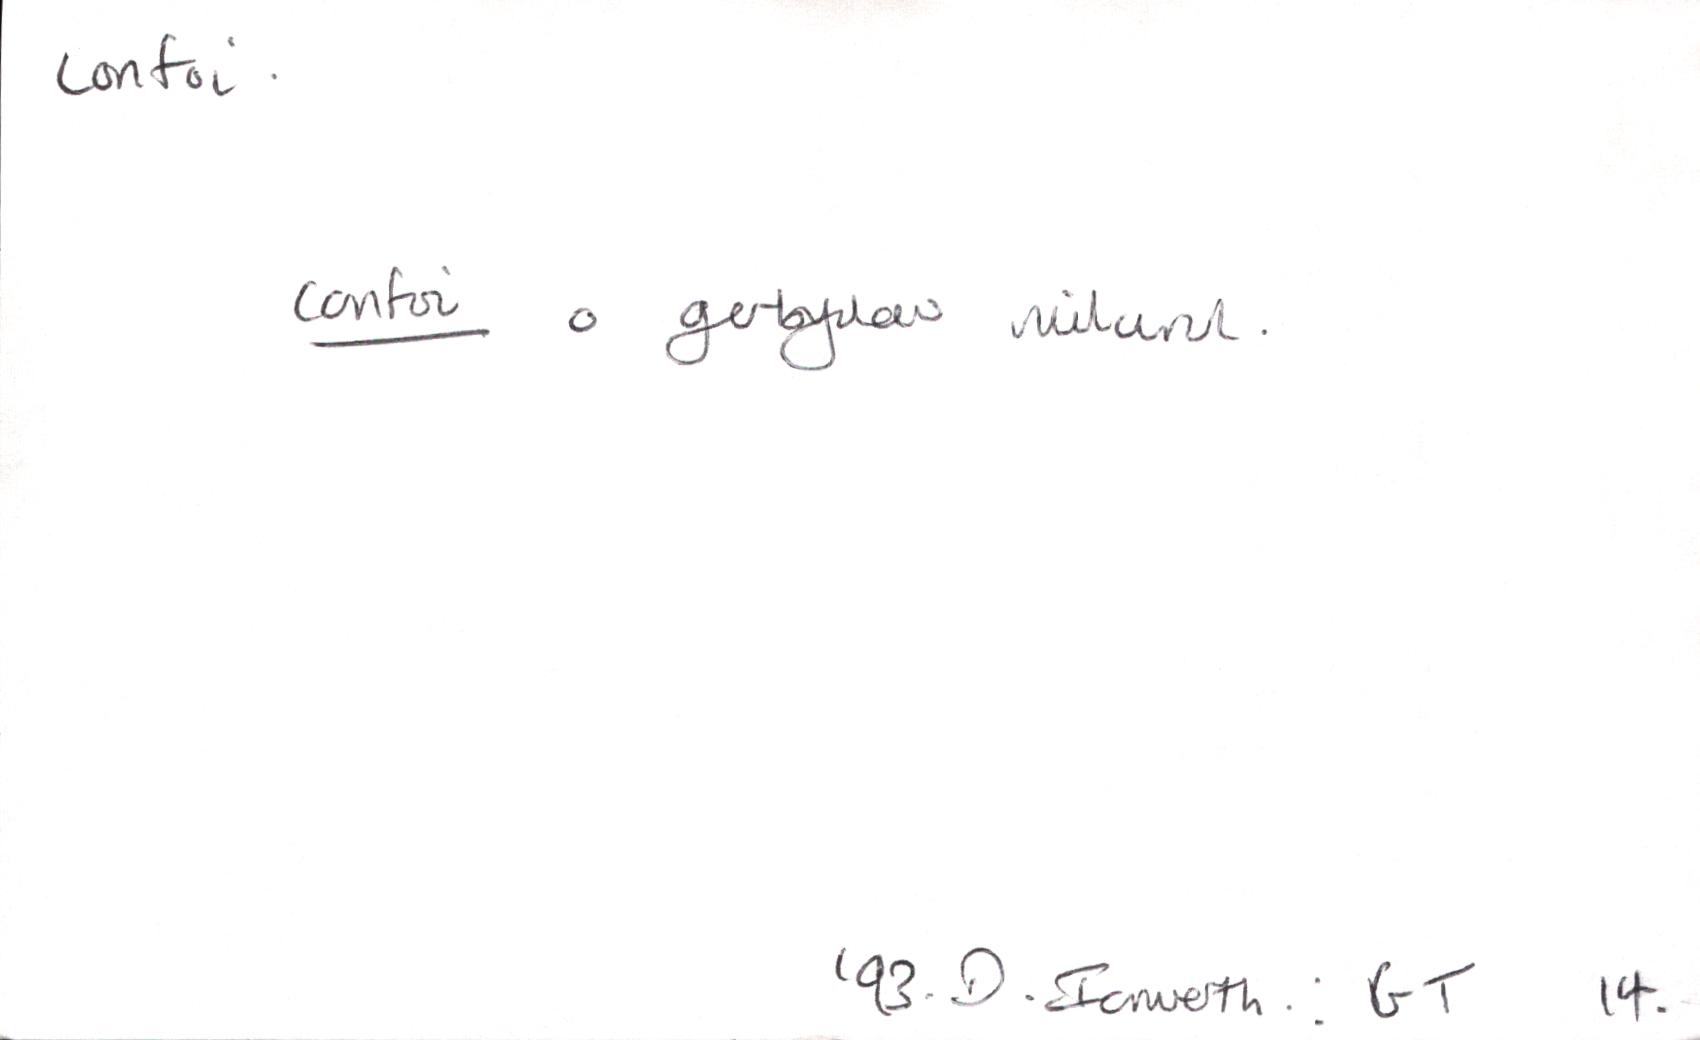 confoi.
confoi o gerbydau milwrol.
'93. D. Iorwerth.: GT 14.